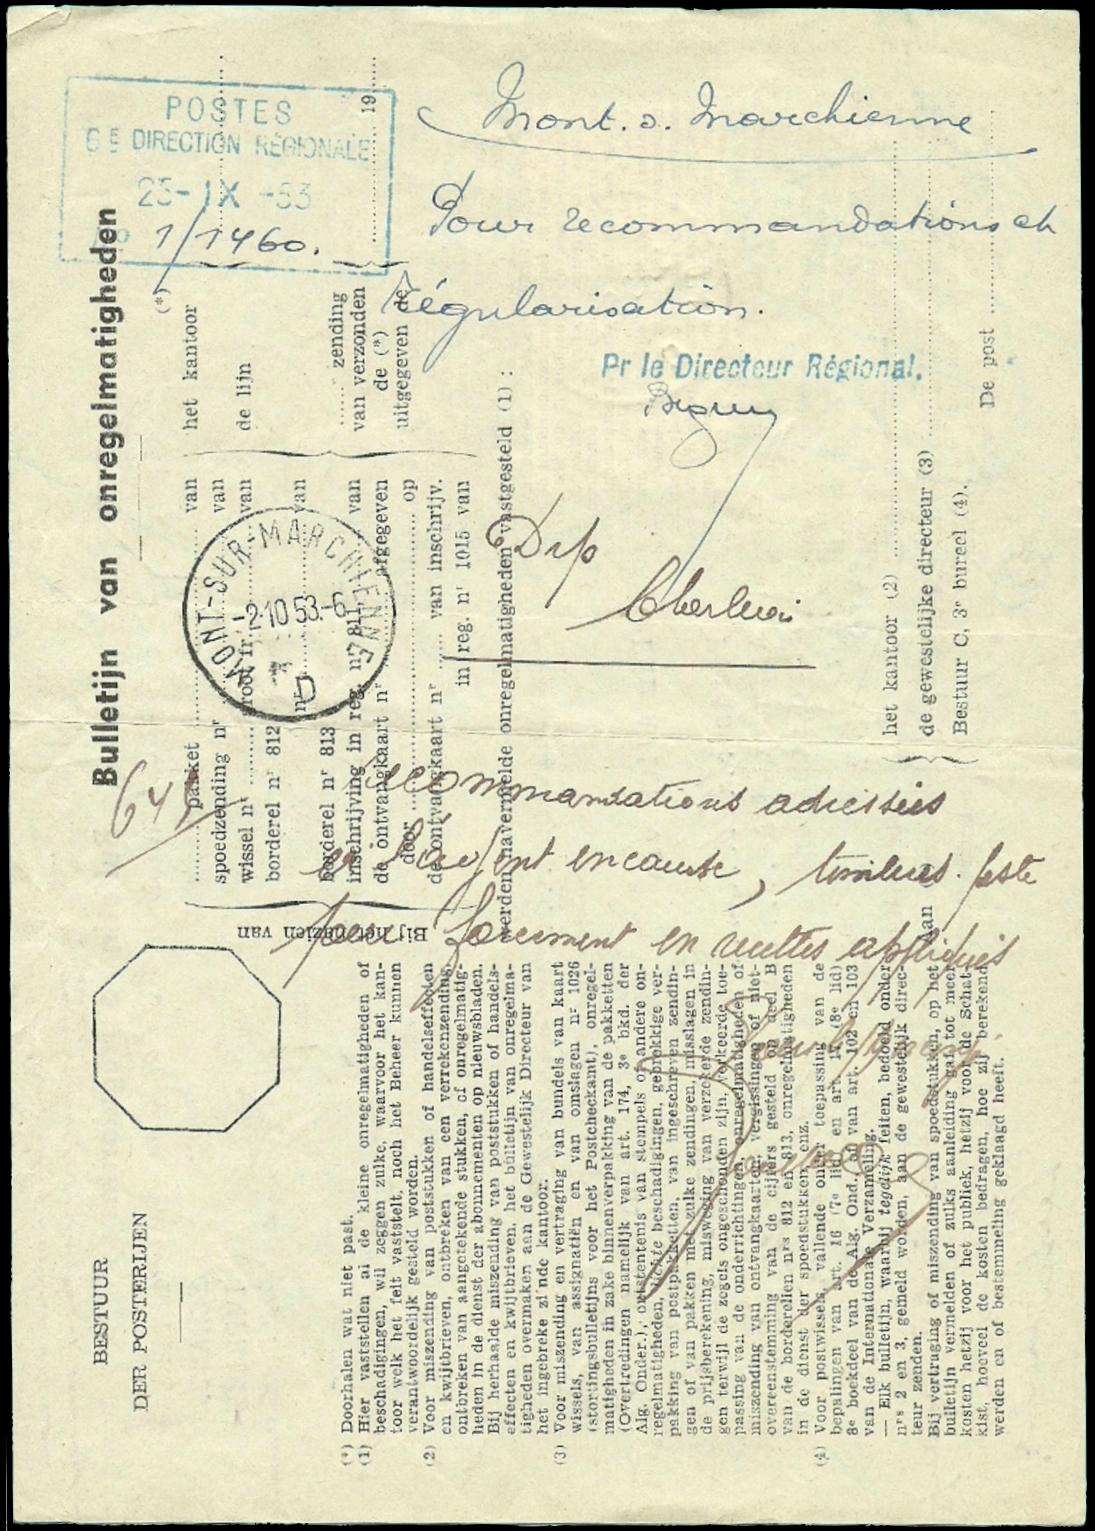 POSTES
6E DIRECTION RÉGIONALE
25-IX-53
1/1460.
Mont. s. Marchienne
Pour recommandations et
régularisation.
Pr le Directeur Régional.
Drp
Charleroi
MONT-SUR-MARCHIENNE
-2.10 53.-6
* D
recommandations adressées
à l'agent en cause, timbres-poste
pour forcement en recettes appliqués
BESTUUR
DER POSTERIJEN
Bulletijn van onregelmatigheden
Bij het nazien van
pakket van
spoedzending nr van
wissel nr groot fr. van
borderel nr 812 nr van
borderel nr 813
inschrijving in reg. nr 811 van
de ontvangkaart nr afgegeven
door op
de ontvangkaart nr van inschrijv.
in reg. nr 1015 van
(*)
het kantoor
de lijn
zending
van verzonden
de (*)
uitgegeven de
19
werden navermelde onregelmatigheden vastgesteld (1) :
Aan
het kantoor (2)
de gewestelijke directeur (3)
Bestuur C, 3e bureel (4).
De post
(*) Doorhalen wat niet past.
(1) Hier vaststellen al de kleine onregelmatigheden of
beschadigingen, wil zeggen zulke, waarvoor het kan-
toor welk het feit vaststelt, noch het Beheer kunnen
verantwoordelijk gesteld worden.
(2) Voor miszending van poststukken of handelseffecten
en kwijtbrieven, ontbreken van een verrekenzending,
ontbreken van aangetekende stukken, of onregelmatig-
heden in de dienst der abonnementen op nieuwsbladen.
Bij herhaalde miszending van poststukken of handels-
effecten en kwijtbrieven, het bulletijn van onregelma-
tigheden overmaken aan de Gewestelijk Directeur van
het ingebreke zijnde kantoor.
(3) Voor miszending en vertraging van bundels van kaart
wissels, van assignatiën en van omslagen nr 1026
(stortingsbulletijns voor het Postcheckamt), onregel-
matigheden in zake binnenverpakking van de pakketten
(Overtredingen namelijk van art. 174, 3e bkd. der
Alg. Onder.), ontstentenis van stempels of andere on-
regelmatigheden, lichte beschadigingen, gebrekkige ver-
pakking van postpakketten, van ingeschreven zendin-
gen of van pakken met zulke zendingen, misslagen in
de prijsberekening, misweging van verzekerde zendin-
gen terwijl de zegels ongeschonden zijn, verkeerde toe-
passing van de onderrichtingen, onregelmatigheden of
miszending van ontvangkaarten, vergissingen of niet-
overeenstemming van de cijfers gesteld op deel B
van de borderellen nrs 812 en 813, onregelmatigheden
in de dienst der spoedstukken, enz.
(4) Voor postwissels, vallende onder toepassing van de
bepalingen van art. 16 (7e lid) en art. (8e lid)
8e boekdeel van de Alg. Ond. of van art. 102 en 103
van de Internationale Verzameling.
— Elk bulletijn, waarbij tegelijk feiten, bedoeld onder
nrs 2 en 3, gemeld worden, aan de gewestelijk direc-
teur zenden.
Bij vertraging of miszending van spoedstukken, op het
bulletijn vermelden of zulks aanleiding gaf tot meer
kosten hetzij voor het publiek, hetzij voor de Schat-
kist, hoeveel de kosten bedragen, hoe zij berekend
werden en of bestemmeling geklaagd heeft.